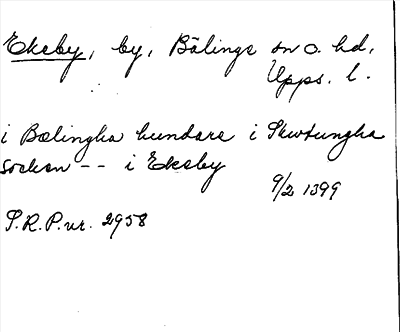 Ekeby, by, Bälinge sn o. hd,
Upps. l.
i Bælingha hundare i Skwtungha
sockon -- i Ekeby
9/2 1399
S.R.P. nr. 2958